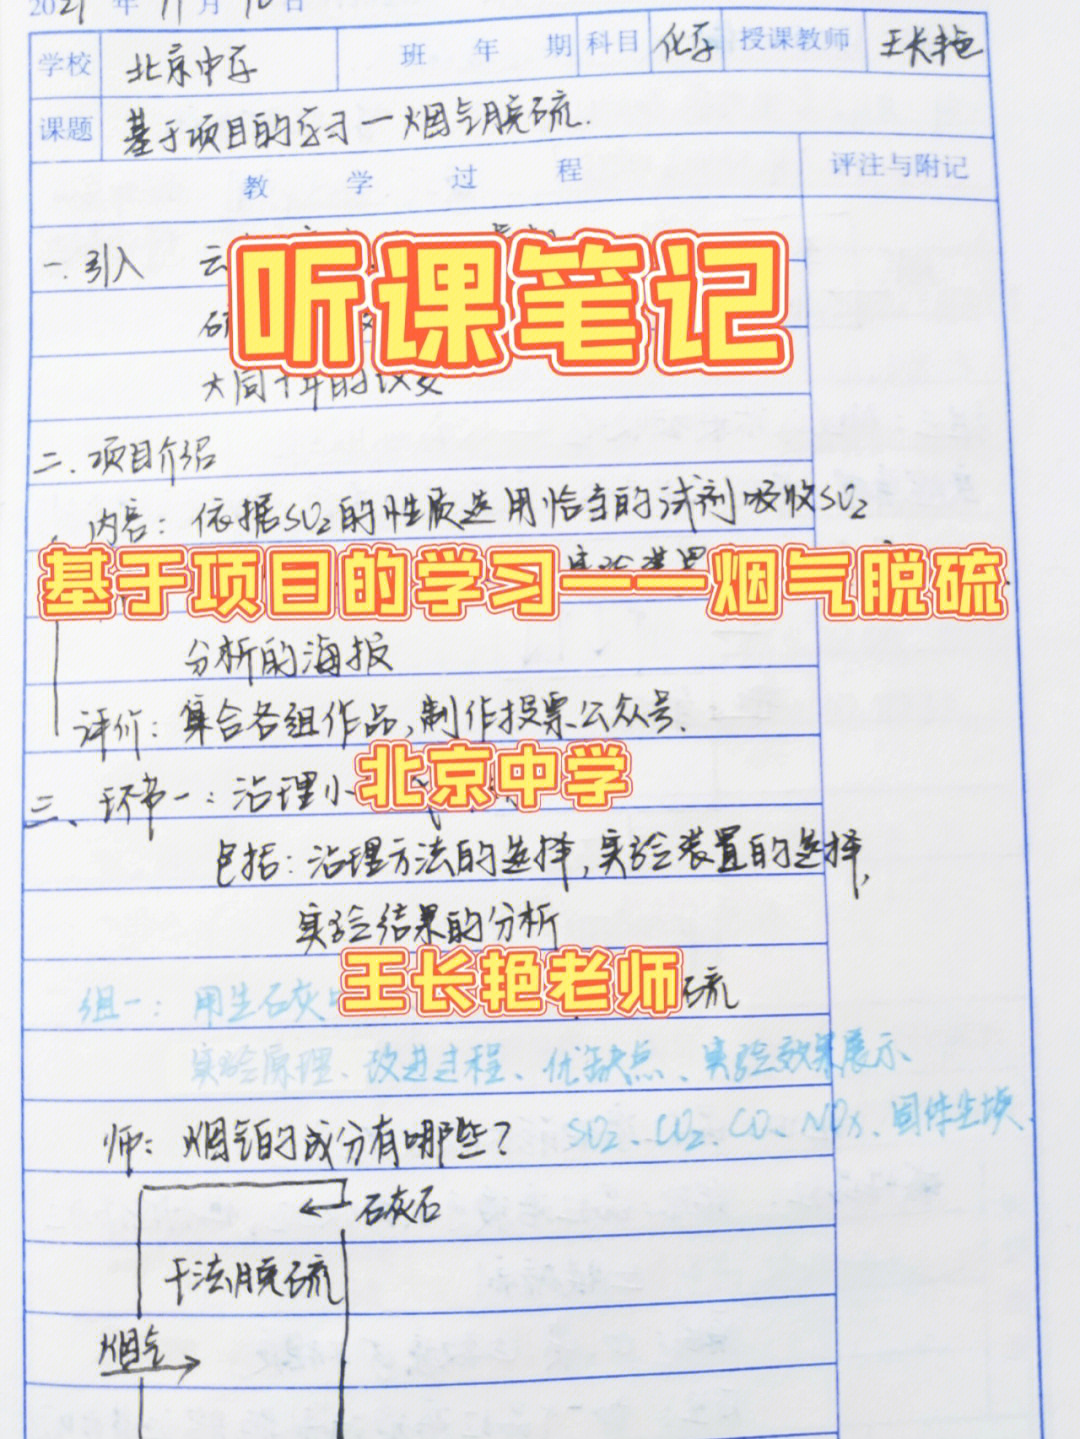 2021 年 11 月 10 日
学校 北京中学 班 年 期 科目 化学 授课教师 王长艳
课题 基于项目的学习—烟气脱硫.
教 学 过 程 评注与附记
一.引入 云
听课笔记
研
大同十年的改变
二.项目介绍
内容: 依据SO2的性质选用恰当的试剂吸收SO2
基于项目的学习——烟气脱硫
分析的海报
评价: 集合各组作品,制作投票公众号.
三、环节一: 治理小
北京中学
包括: 治理方法的选择,实验装置的选择,
实验结果的分析
组一: 用生石灰 硫
王长艳老师
实验原理、改进过程、优缺点、实验效果展示
师: 烟气的成分有哪些? SO2、CO2、CO、NOx、固体尘埃.
石灰石
干法脱硫
烟气